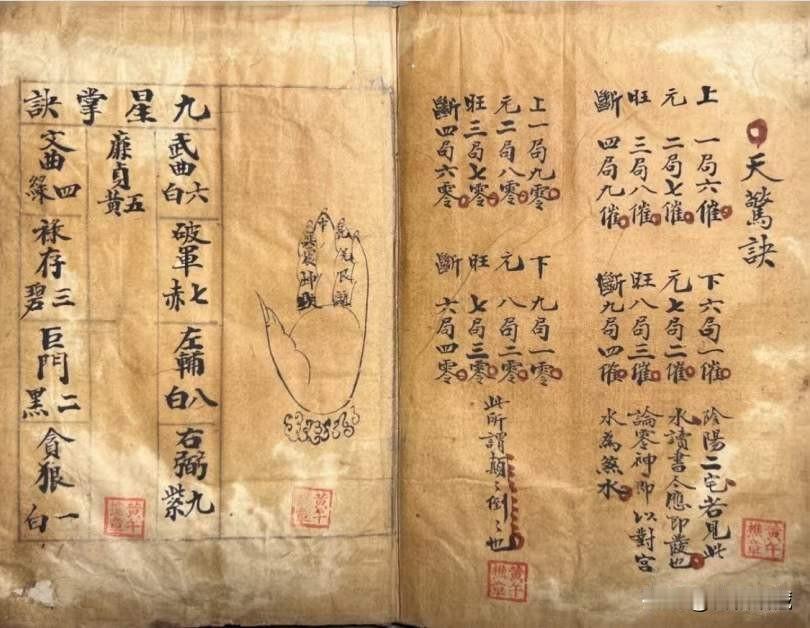 天驚訣
上 一局六催
元 二局七催
旺 三局八催
斷 四局九催
下 六局一催
元 七局二催
旺 八局三催
斷 九局四催
陰陽二宅若見此
水讀書人應即發也
論零神即以對宮
水為煞水
上一局九零
元二局八零
旺三局七零
斷四局六零
下 九局一零
元 八局二零
旺 七局三零
斷 六局四零
此所謂顛〻倒〻也
九星掌訣
武曲六白
破軍七赤
左輔八白
右弼九紫
廉貞五黃
文曲四綠
祿存三碧
巨門二黑
貪狼一白